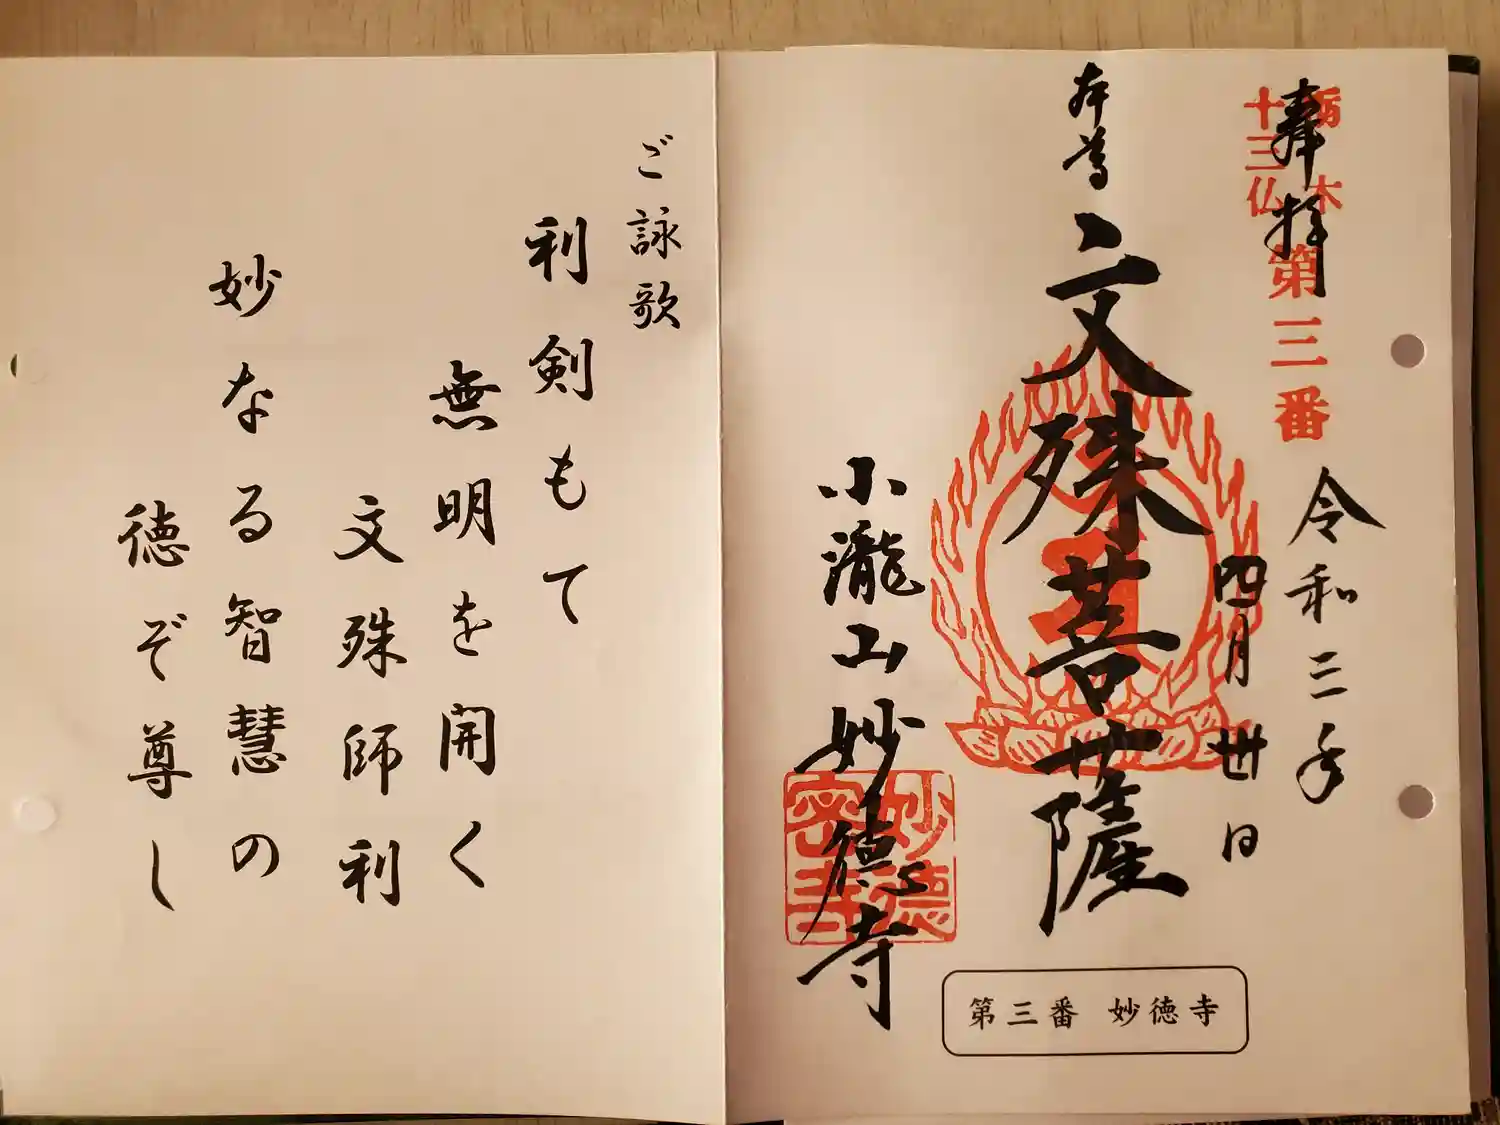 奉拝
栃木
十三仏
第三番
令和三年
四月卅日
本尊
文殊菩薩
小瀧山妙徳寺
妙徳
密寺
第三番 妙徳寺
ご詠歌
利剣もて
無明を開く
文殊師利
妙なる智慧の
徳ぞ尊し